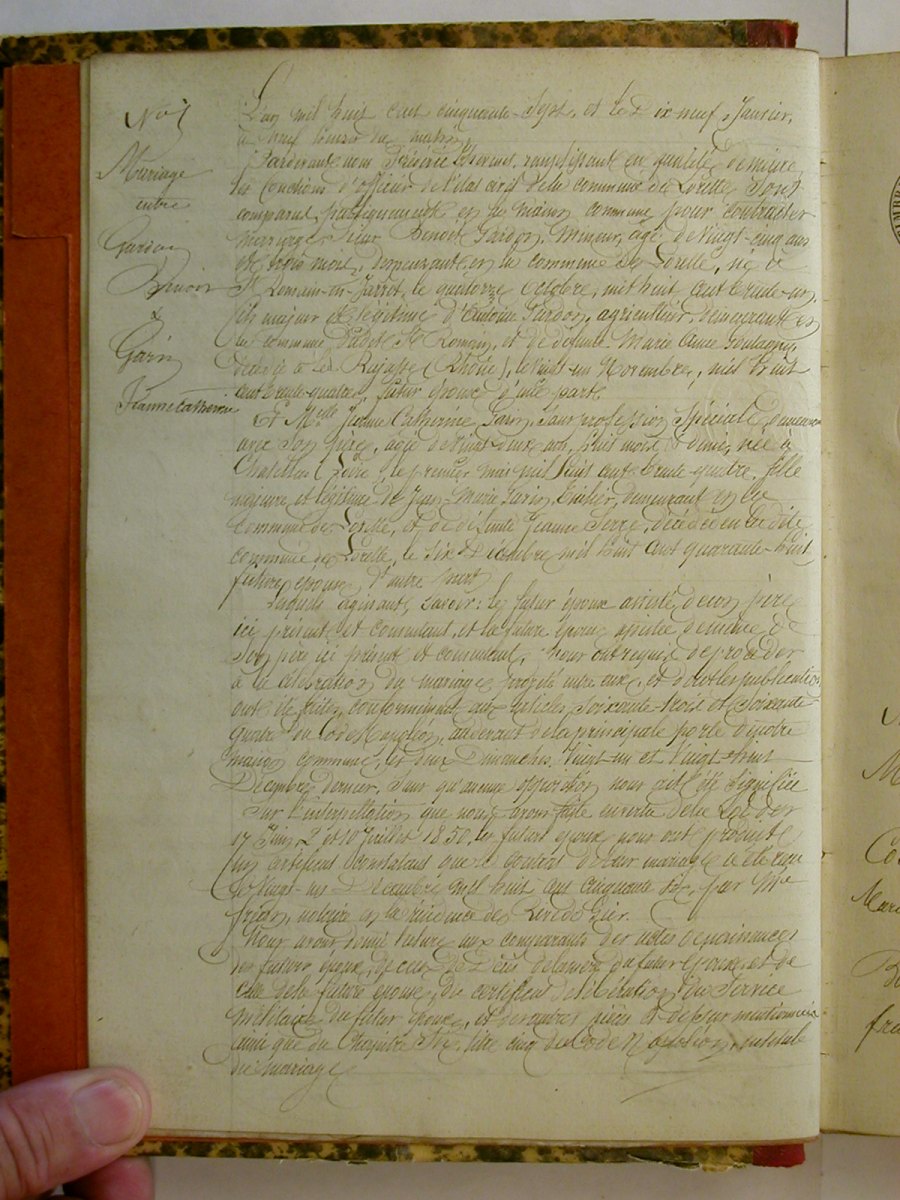 Mariage
entre
Gardon
Benoit
&
Garin
Jeanne Catherine
L'an mil huit cent cinquante-Sept, et le Dix-neuf Janvier,
à neuf heures du matin,
Pardevant nous Frédéric remplissant en qualité de maire
les fonctions d'officier de l'état civil de la commune de Lorette Sont
comparus publiquement en la maison commune pour contracter
mariage Sieur Benoit Gardon, Mineur, âgé de Vingt-cinq ans
et trois mois, demeurant en la commune de Lorette, né à
St Romain-en-Jarret, le quatorze Octobre, mil huit cent trente-un,
fils majeur et légitime d'Antoine Gardon, agriculteur, demeurant en
la commune dudit St Romain, et de défunte Marie Anne
décédée à (Rhône), le vingt-un Novembre, mil huit
cent trente-quatre, futur époux d'une part.
Et Melle Jeanne Catherine Garin, Sans profession Spéciale, demeurant
avec Son père, agée de Vingt-deux ans, huit mois et demi, née à
Chatelus (Loire), le premier mai mil huit cent trente-quatre, fille
majeure et légitime de Jean-Marie Garin, demeurant en la
commune de Lorette, et de défunte Jeanne Serre, décédée en la dite
commune de Lorette, le Six Décembre mil huit cent quarante-huit,
future épouse, d'autre part.
Lesquels agissant, Savoir: le futur époux assisté de son père
ici présent et consentant, et la future épouse assistée de même de
Son père ici présent et consentant, Nous ont requis de procéder
à la célébration du mariage projeté entre eux, et dont les publications
ont été faites, conformément aux articles Soixante-trois et Soixante
quatre du Code Napoléon, audevant de la principale porte de notre
maison commune, les deux Dimanches Vingt-un et Vingt-huit
Décembre dernier, Sans qu'aucune opposition nous ait été Signifiée
Sur l'interpellation que nous avons faite en vertu de la Loi des
17 Juin, 2 et 10 Juillet 1850, les futurs époux nous ont produit
un certificat constatant que le contrat de leur mariage a été reçu
le Vingt-un Décembre mil huit cent cinquante Six, par Me
notaire en la résidence de Rive de Gier.
Nous avons donné lecture aux comparants des actes de naissances
des futurs époux, de ceux de Décès de la mère du futur époux, et de
celle de la future épouse, du certificat de libération du Service
Militaire du futur époux, et des autres pièces ci-dessus mentionnées
ainsi que du Chapitre Six, titre cinq du Code Napoléon, intitulé
du mariage